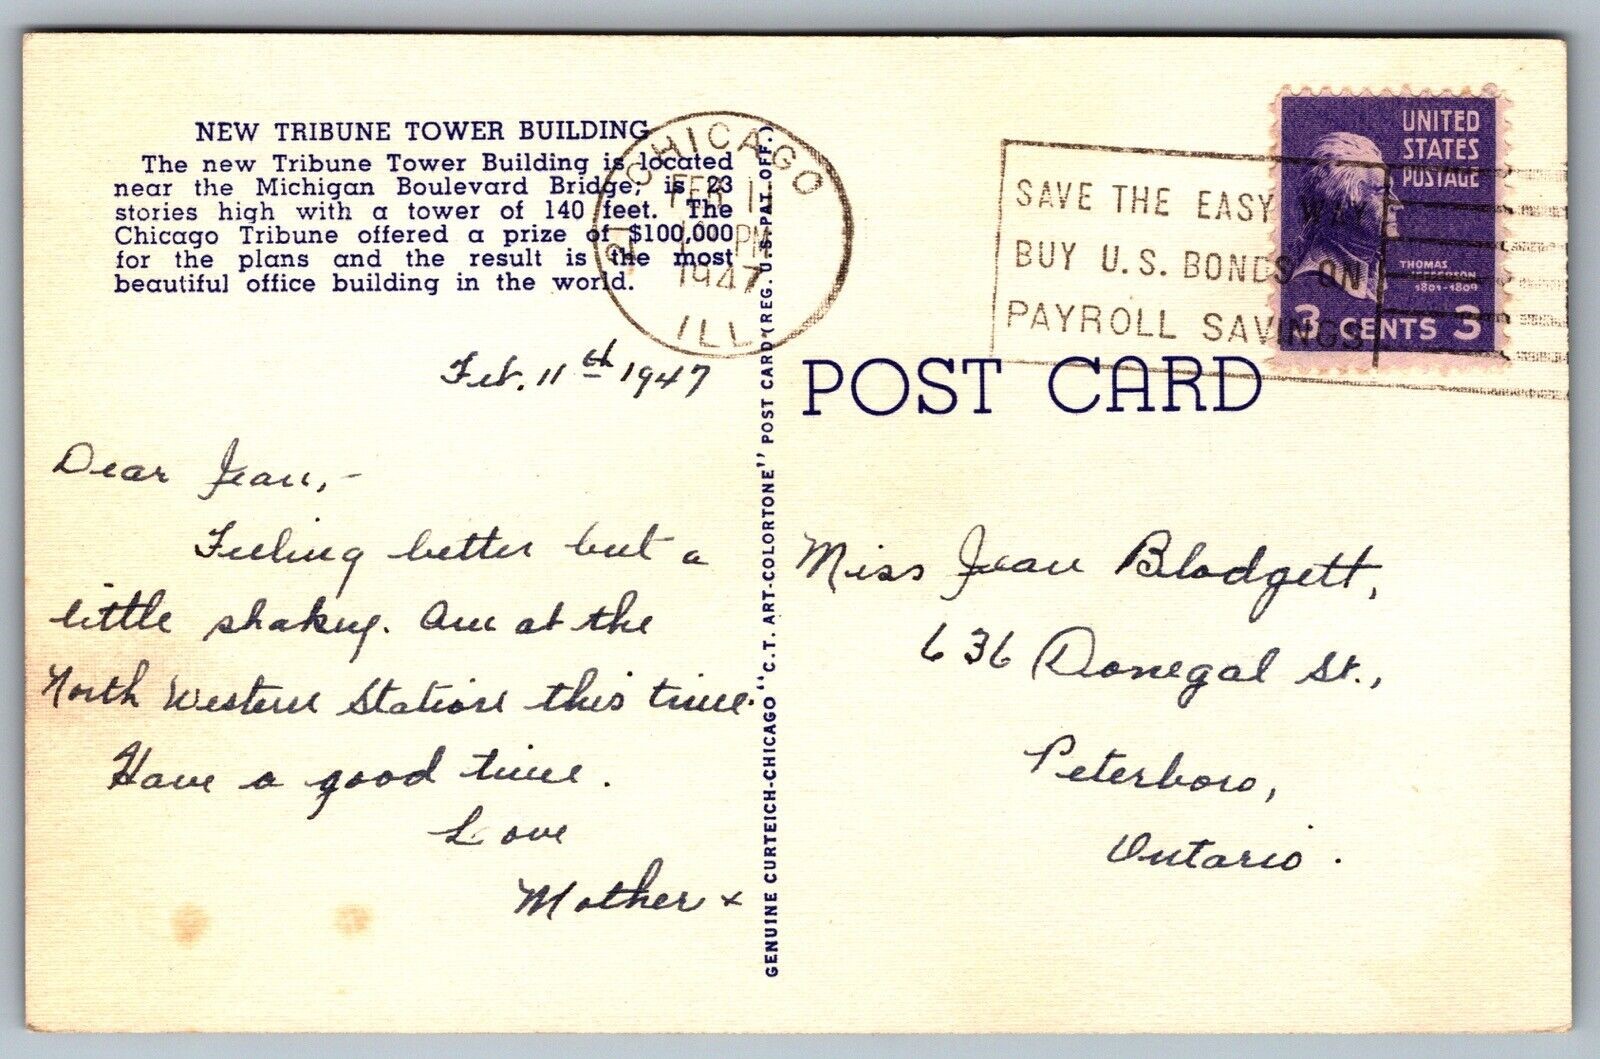 NEW TRIBUNE TOWER BUILDING
The new Tribune Tower Building is located
near the Michigan Boulevard Bridge; is 23
stories high with a tower of 140 feet. The
Chicago Tribune offered a prize of $100,000
for the plans and the result is the most
beautiful office building in the world.
CHICAGO
FEB 11
PM
1947
ILL
SAVE THE EASY WAY
BUY U.S. BONDS ON
PAYROLL SAVINGS
UNITED
STATES
POSTAGE
THOMAS
JEFFERSON
1801-1809
3 CENTS 3
POST CARD
GENUINE CURTEICH-CHICAGO "C.T. ART-COLORTONE" POST CARD (REG. U.S. PAT. OFF.)
Feb. 11th 1947
Dear Jean,-
Feeling better but a
little shakey. Am at the
North Western Station this time.
Have a good time.
Love
Mother x
Miss Jean Blodgett,
636 Donegal St.,
Peterboro,
Ontario.